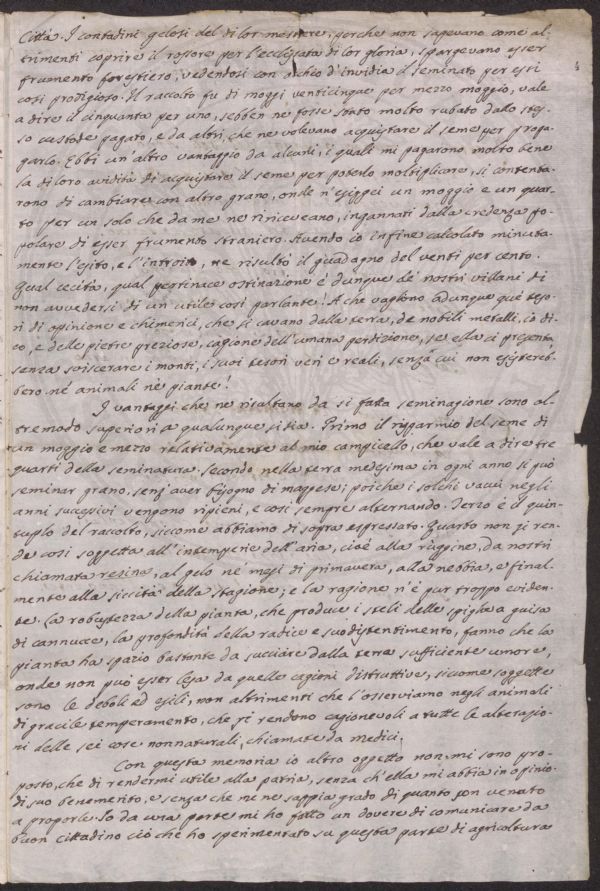 Città. I contadini gelosi del di lor mestiere, perche non sapevano come al-
trimenti coprire il rossore per l'ecclissata di lor gloria, spargevano esser
frumento forestiero, vedendosi con occhio d'invidia il seminato per essi
così prodigioso. Il raccolto fu di moggi venticinque per mezzo moggio, vale
a dire il cinquanta per uno, sebben ne fosse stato molto rubato dallo stes-
so custode pagato, e da altri, che ne volevano acquistare il seme per propa-
garlo. Ebbi un'altro vantaggio da alcuni, i quali mi pagarono molto bene
la di loro avidità di acquistare il seme per poterlo moltiplicare, si contenta-
rono di cambiare con altro grano, onde n'esiggei un moggio e un quar-
to per un solo che da me ne ririceveano, ingannati dalla credenza po-
polare di esser frumento straniero. Avendo io infine calcolato minuta-
mente l'esito, e l'introito, ne risultò il guadagno del venti per cento.
Qual cecità, qual pertinace ostinazione è dunque de' nostri villani di
non avvedersi di un utile così parlante! A che vagliono adunque que' teso-
ri di opinione e chimerici, che si cavano dalla terra, de nobili metalli, io di-
co, e delle pietre preziose, cagione dell'umana perdizione, se ella ci presenta,
senza sviscerare i monti, i suoi tesori veri e reali, senza cui non esistereb-
bero né animali né piante!
I vantaggi che ne risultano da sì fatta seminagione sono al-
tremodo superiori a qualunque si sia. Primo il risparmio del seme di
un moggio e mezzo relativamente al mio campicello, che vale a dire tre
quarti della seminatura. Secondo nella terra medesima in ogni anno si può
seminar grano, senz'aver bisogno di maggese; poiche i solchi vacui negli
anni successivi vengono ripieni, e così sempre alternando. Terzo è il quin-
tuplo del raccolto, siccome abbiamo di sopra espressato. Quarto non si ren-
de così soggetta all'intemperie dell'aria, cioè alla ruggine, da nostri
chiamata resina, al gelo né mesi di primavera, alla nebbia, e final-
mente alla siccità della stagione; e la ragione n'è pur troppo eviden-
te. La robustezza della pianta, che produce i steli delle spighe a guisa
di cannucce, la profondità della radice e suo distentimento, fanno che la
pianta ha spazio bastante da succiare dalla terra sufficiente umore,
onde non può esser lesa da quelle cagioni distruttive, siccome soggette
sono le deboli ed esili, non altrimenti che l'osserviamo negli animali
di gracile temperamento, che si rendono cagionevoli a tutte le alterazio-
ni delle sei cose nonnaturali, chiamate da medici.
Con questa memoria io altro oggetto non mi sono pro-
posto, che di rendermi utile alla patria, senza ch'ella mi abbia in opinio-
di suo benemerito, e senza che ne ne sappia grado di quanto son venuto
a proporle. Io da una parte mi ho fatto un dovere di comunicare da
buon cittadino ciò che ho sperimentato su questa parte di agricoltura